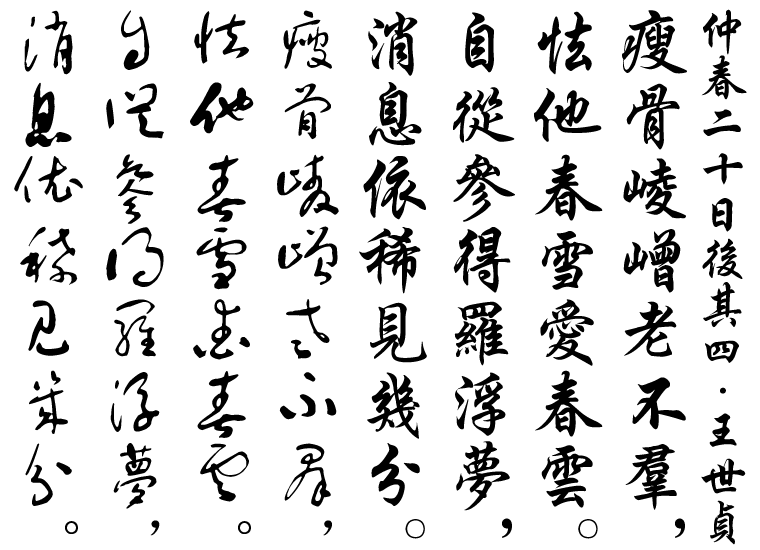 仲春二十日後其四·王世貞
瘦骨崚嶒老不羣，
怯他春雪愛春雲。
自從參得羅浮夢，
消息依稀見幾分。
瘦骨崚嶒老不羣，
怯他春雪愛春雲。
自從參得羅浮夢，
消息依稀見幾分。